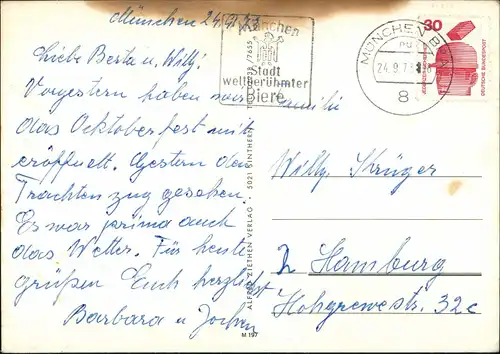 München 24.9.73
Liebe Berta u. Willy!
Vorgestern haben wir Familie
das Ocktoberfest mit
eröffnet. Gestern den
Trachtenzug gesehen.
Es war prima auch
das Wetter. Für heute
grüßen Euch herzlichst
Barbara u. Jochen
München
Stadt
weltberühmter
Biere
MÜNCHEN
24.9.73
8
30
DEUTSCHE BUNDESPOST
ALFRED ZIETHEN VERLAG · 5021 SINTHERN
M 197
Willy Krüger
2 Hamburg
Hohgrewestr. 32c